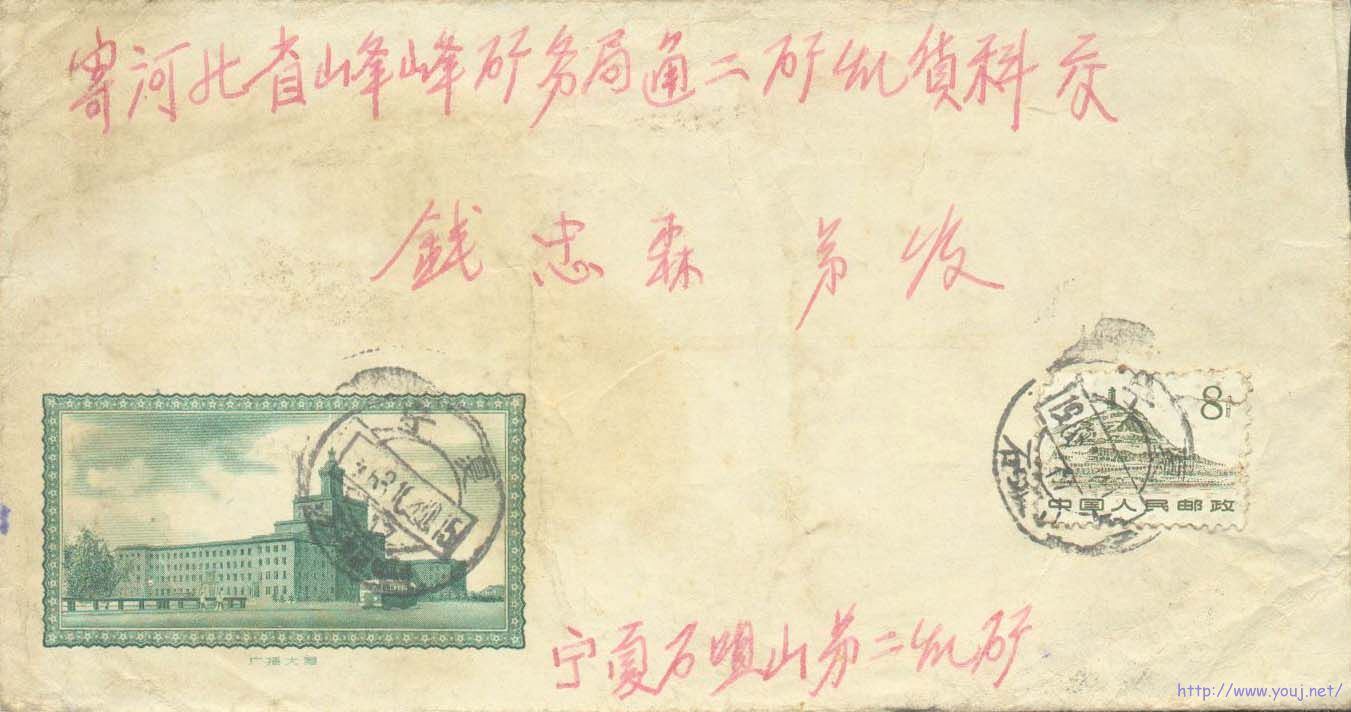 寄河北省峰峰矿务局通二矿机货科交
錢忠霖弟收
8分
中国人民邮政
宁夏
广播大厦
宁夏石咀山第二机矿
http://www.youj.net/